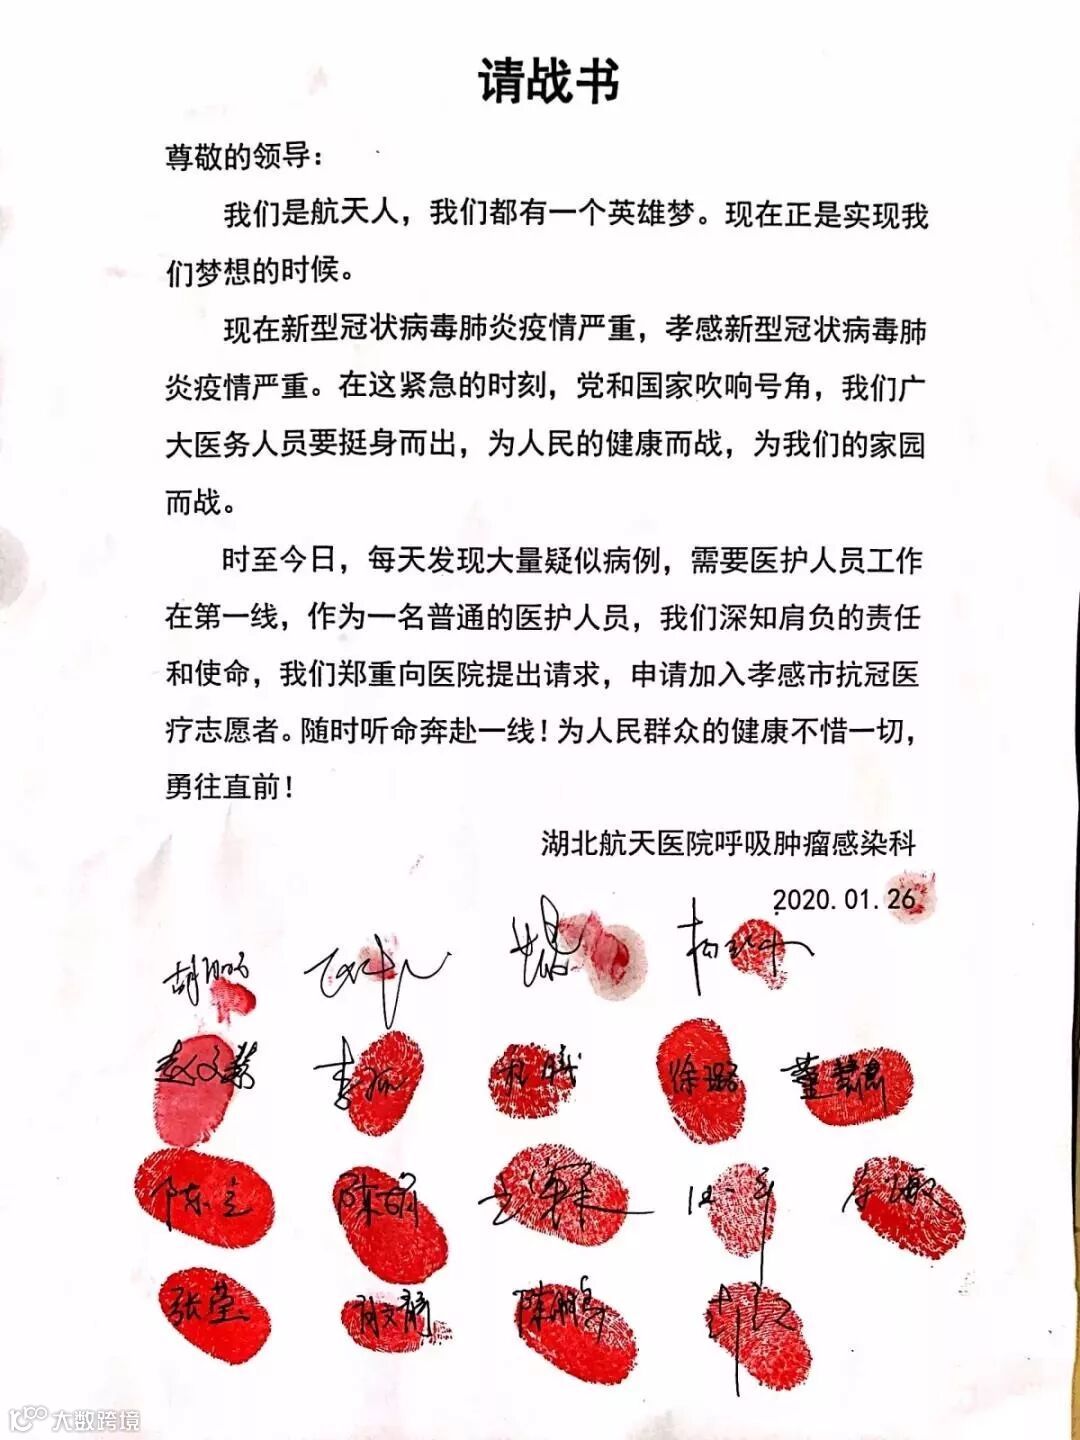 请战书
尊敬的领导：
我们是航天人，我们都有一个英雄梦。现在正是实现我
们梦想的时候。
现在新型冠状病毒肺炎疫情严重，孝感新型冠状病毒肺
炎疫情严重。在这紧急的时刻，党和国家吹响号角，我们广
大医务人员要挺身而出，为人民的健康而战，为我们的家园
而战。
时至今日，每天发现大量疑似病例，需要医护人员工作
在第一线，作为一名普通的医护人员，我们深知肩负的责任
和使命，我们郑重向医院提出请求，申请加入孝感市抗冠医
疗志愿者。随时听命奔赴一线！为人民群众的健康不惜一切，
勇往直前！
湖北航天医院呼吸肿瘤感染科
2020.01.26
赵文慧 徐璐
陈立 陈萌
张莹
大数跨境